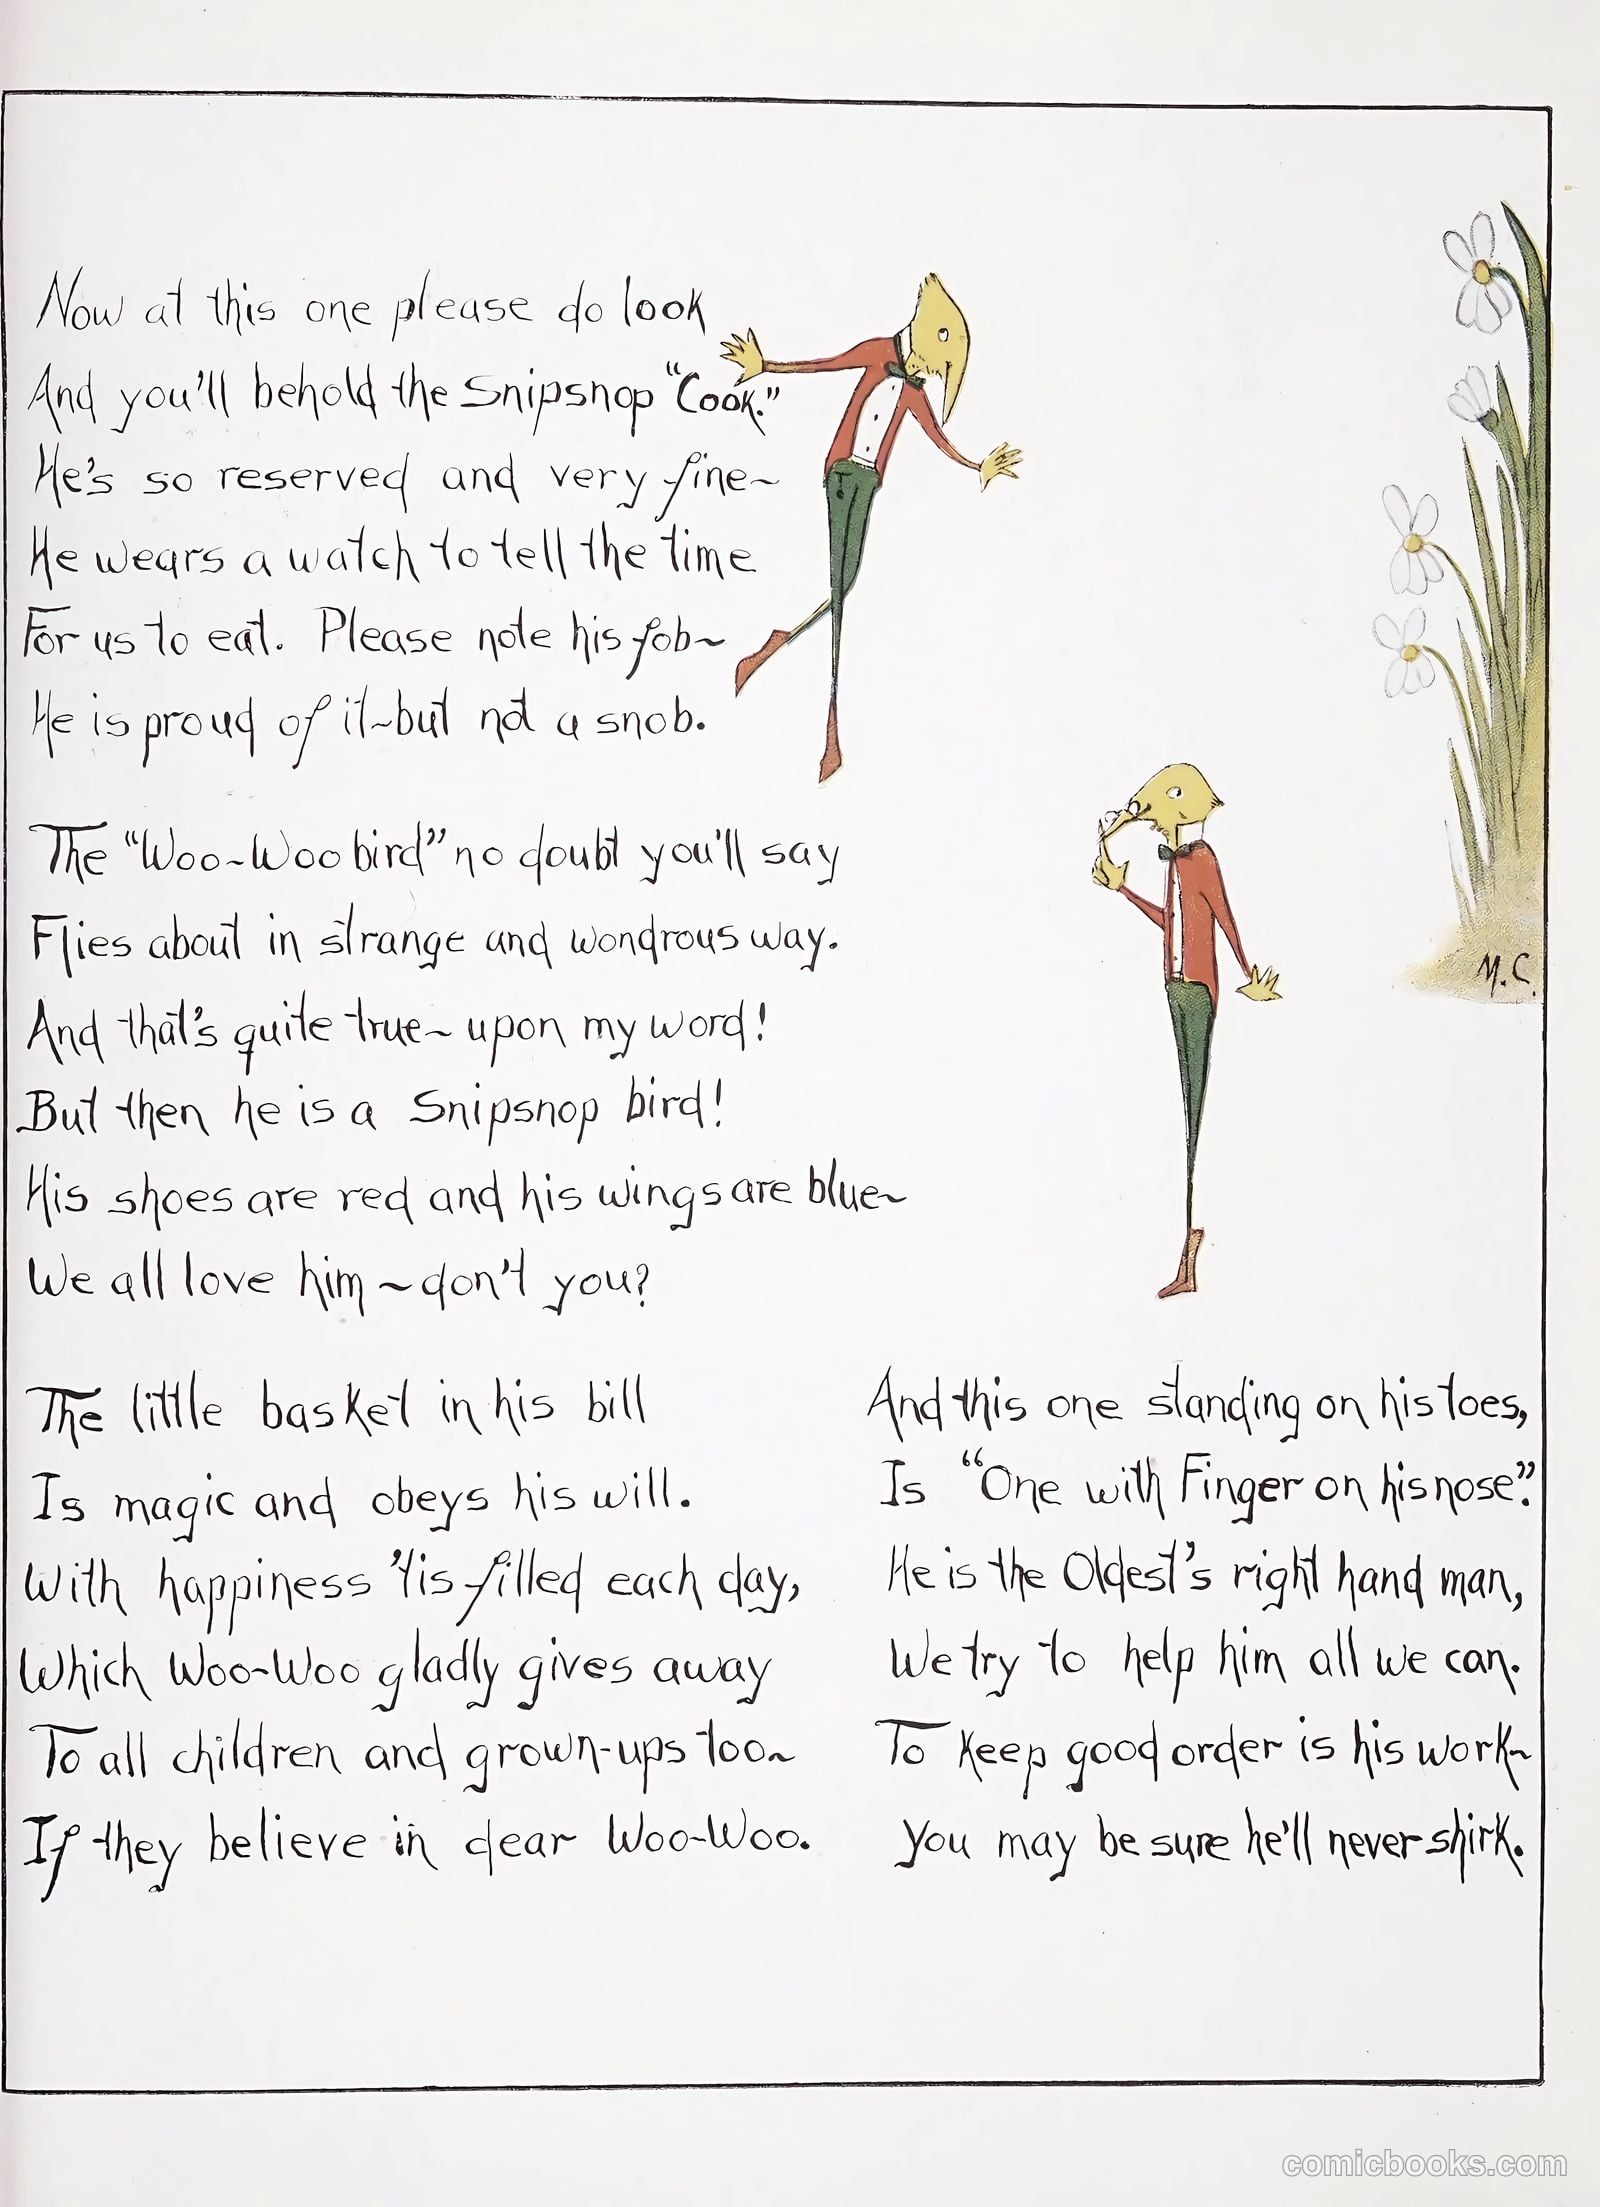 Now at this one please do look
And you'll behold the Snipsnop "Cook."
He's so reserved and very fine~
He wears a watch to tell the time
For us to eat. Please note his fob~
He is proud of it~but not a snob.
The "Woo~Woo bird" no doubt you'll say
Flies about in strange and wondrous way.
And that's quite true~ upon my word!
But then he is a Snipsnop bird!
His shoes are red and his wings are blue~
We all love him ~ don't you?
The little basket in his bill
Is magic and obeys his will.
With happiness 'tis filled each day,
Which Woo-Woo gladly gives away
To all children and grown-ups too~
If they believe in dear Woo-Woo.
And this one standing on his toes,
Is "One with Finger on his nose".
He is the Oldest's right hand man,
We try to help him all we can.
To keep good order is his work~
You may be sure he'll never shirk.
M.C.
comicbooks.com